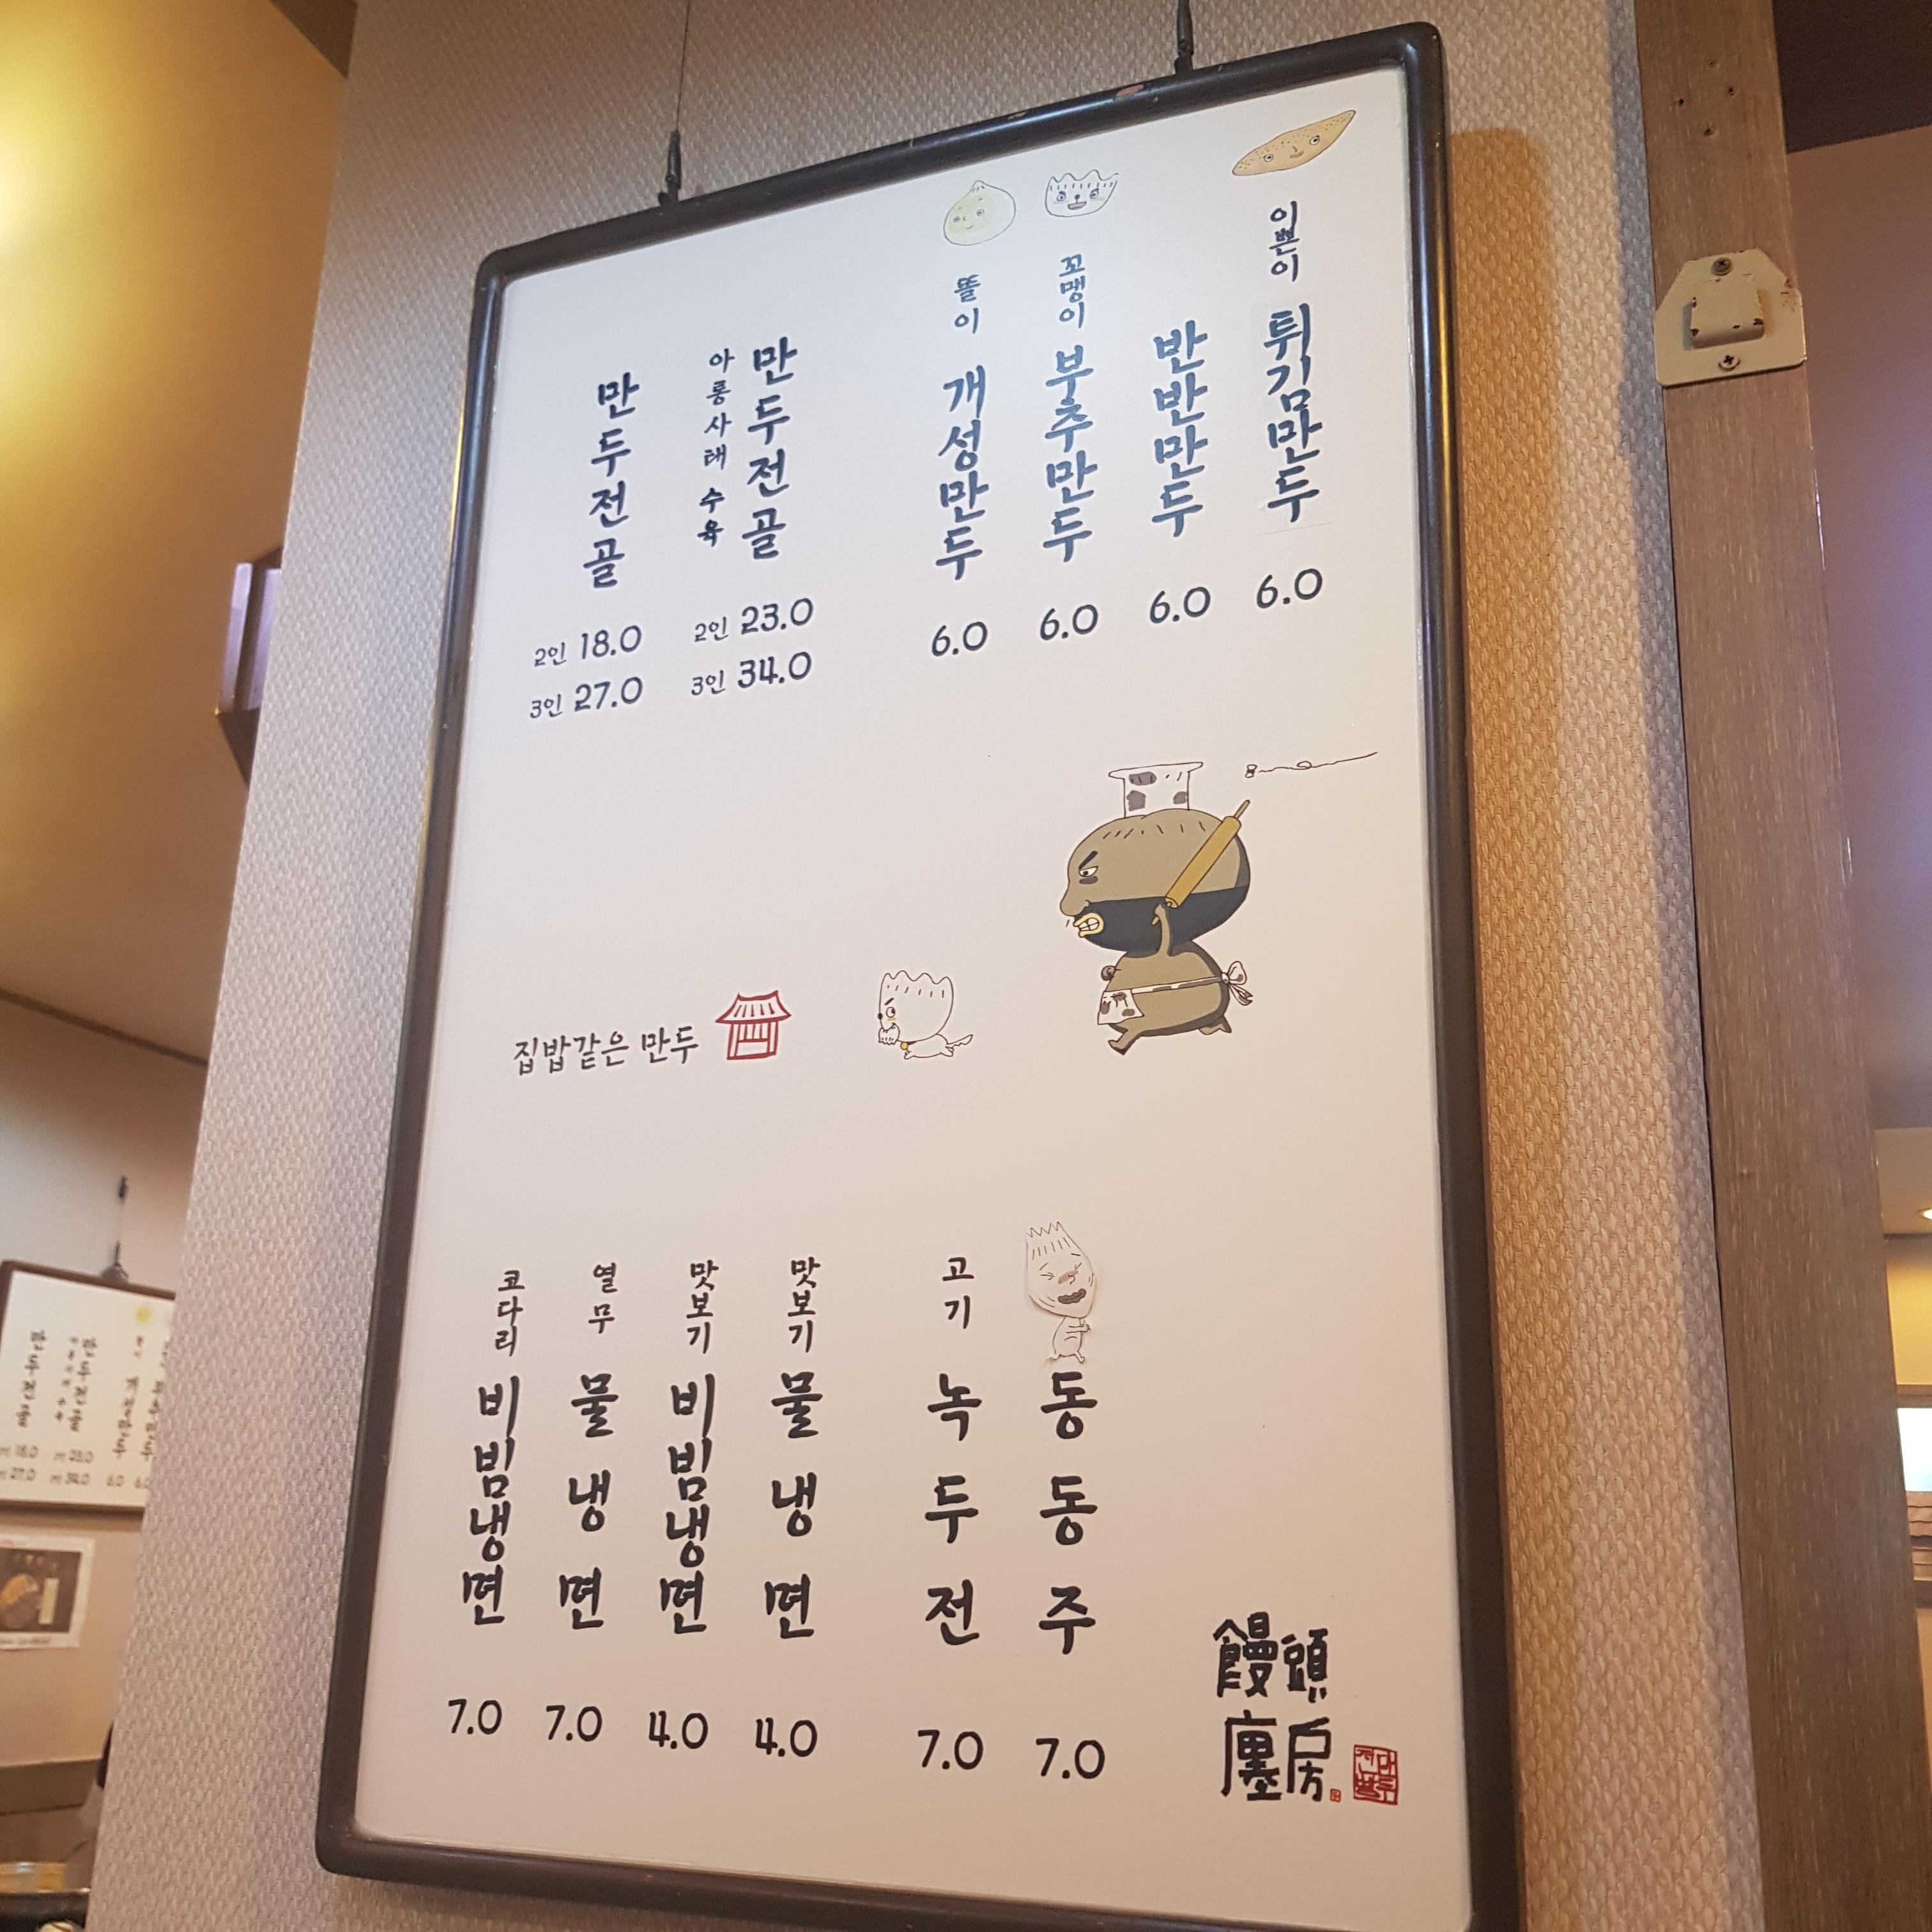 만두전골
2인 18.0
3인 27.0
아롱사태 수육
만두전골
2인 23.0
3인 34.0
뜰이 개성만두
6.0
꼬맹이 부추만두
6.0
반반만두
6.0
이쁜이 튀김만두
6.0
집밥같은 만두
코다리 비빔냉면
7.0
열무 물냉면
7.0
맛보기 비빔냉면
4.0
맛보기 물냉면
4.0
고기 녹두전
7.0
동동주
7.0
饅頭
廛房
만두전골
만두전골